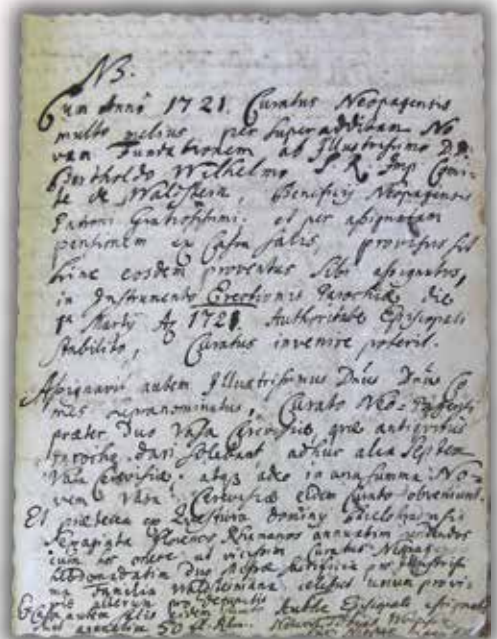 NB.
Cum Anno 1721. Curatus Neopagensis
multo melius, per superadditam No
vam Fundationem ab Illustrissimo DD.
Bertholdo Wilhelmo S. R. Imp. Comi-
te de Waldstein, Beneficij Neopagensis
Patroni Gratiosissimi. et per assignatam
pensionem ex Cassa salis, provisus sit
hinc eosdem proventus sibi assignatos,
in Instrumento Erectionis Parochiæ die
1ª Martij Aº 1721. Authoritate Episcopali
stabilito, Curatus invenire poterit.
Assignavit autem Illustrissimus Dnus Dnus Co-
mes supranominatus, Curato Neo-Pagensi
præter Duo Vasa Cerevisiæ, quæ antiquitus
Parocho dari solebant adhuc alia Septem
Vasa Cerevisiæ: atque adeo in una summa No-
vem Vasa Cerevisiæ eidem Curato obveniunt.
Et præterea ex Quæstura Dominij
Sexaginta Florenos Rhenanos annuatim
cum hoc onere, ut vicissim Curatus Neopag.
hebdomadatim Duo Missæ sacrificia pro Illustrissi
ma Familia Waldsteiniana, celebret unum pro vi-
vis alterum pro defunctis
Ex Cassa autem salis eidem Autho. Episcopali assignati
sunt annuatim 50 fl. Rhn.